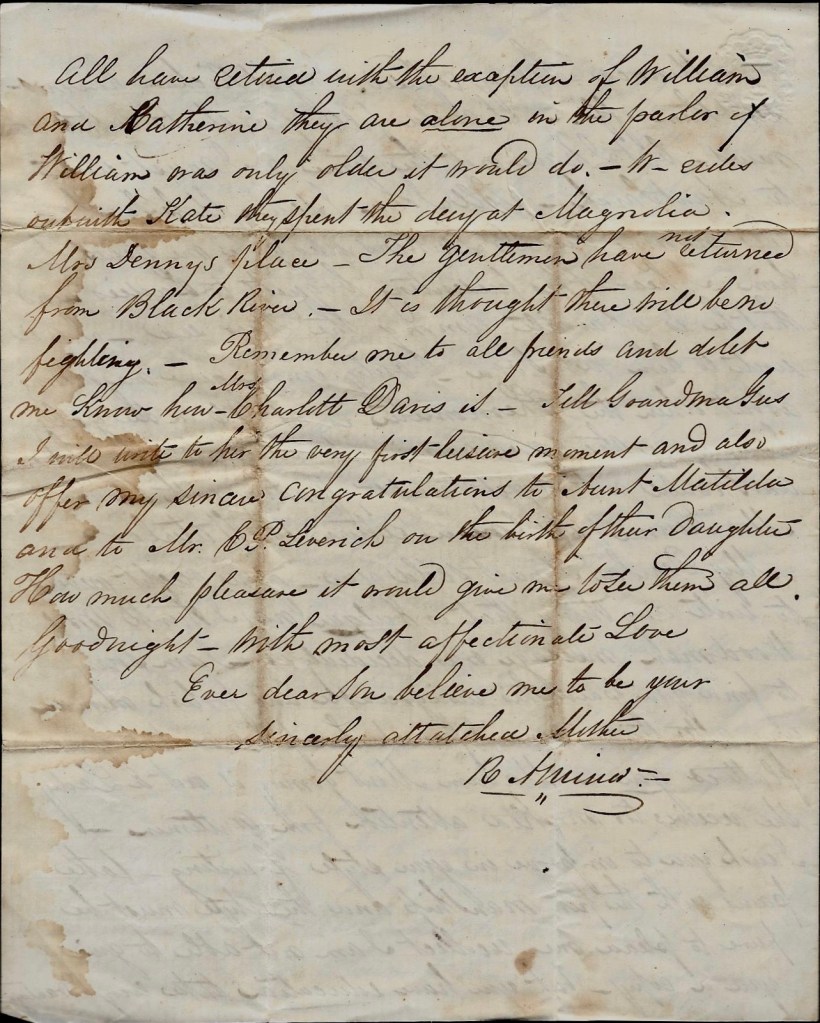 All have retired with the exception of William
and Katherine they are alone in the parlor if
William was only older it would do. - W- rides
out with Kate they spent the day at Magnolia.
Mrs Dennys place - The Gentlemen have not returned
from Black River. - It is thought there will be no
fighting. - Remember me to all friends and do let
me Know how - Mrs Charlott Davis is. - Tell Grandma Gus
I will write to her the very first leisure moment and also
offer my sincere congratulations to Aunt Matilda
and to Mr. C P. Leverich on the birth of their Daughter
How much pleasure it would give me to see them all.
Goodnight - With most affectionate Love
Ever dear Son believe me to be your
sincerly attatched Mother
R A Minor -